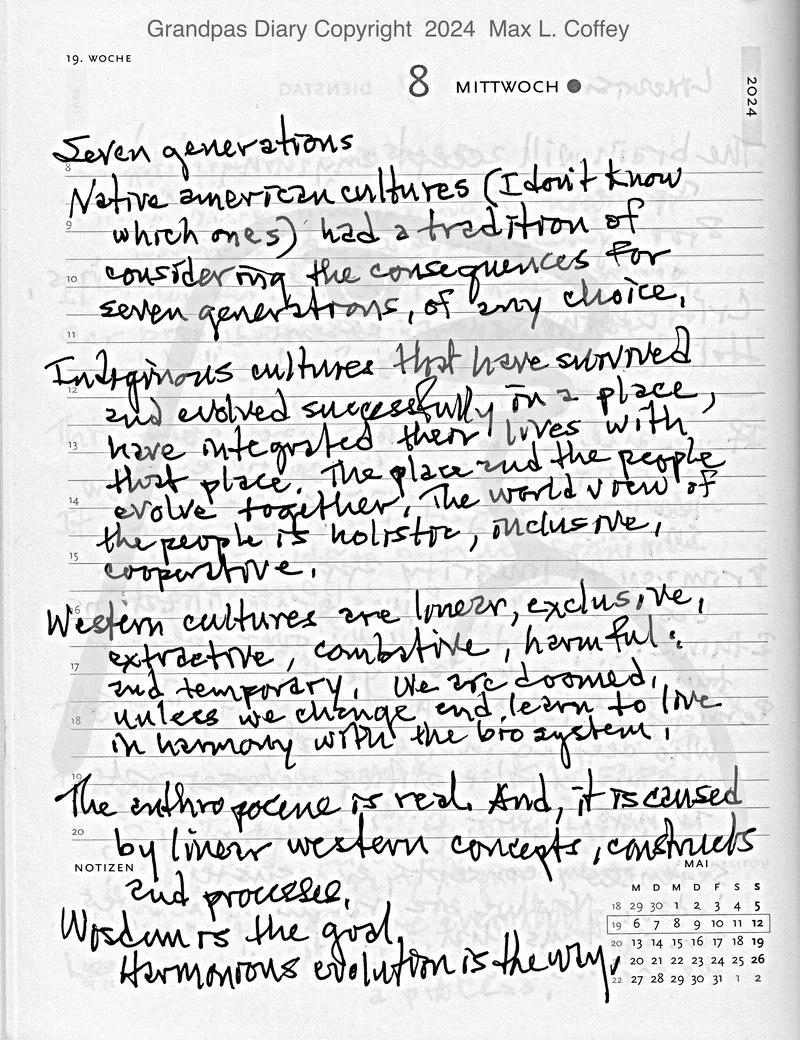 Grandpas Diary Copyright 2024 Max L. Coffey
19. WOCHE
8 MITTWOCH
2024
Seven generations
8
Native american cultures (I don't know
9
which ones) had a tradition of
10
considering the consequences for
seven generations, of any choice.
11
Indiginous cultures that have survived
12
and evolved successfully in a place,
13
have integrated their lives with
that place. The place and the people
14
evolve together. The world view of
the people is holistic, inclusive,
15
cooperative.
16
Western cultures are linear, exclusive,
extractive, combative, harmful:
17
and temporary. We are doomed,
18
unless we change and learn to live
in harmony with the bio system.
19
The anthropocene is real. And, it is caused
20
by linear western concepts, constructs
NOTIZEN
and processes.
Wisdom is the goal,
Harmonious evolution is the way.
MAI
M D M D F S S
18 29 30 1 2 3 4 5
19 6 7 8 9 10 11 12
20 13 14 15 16 17 18 19
21 20 21 22 23 24 25 26
22 27 28 29 30 31 1 2